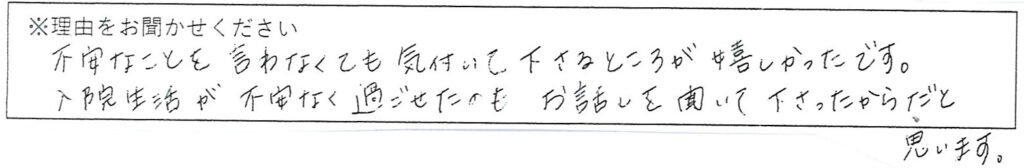 ※理由をお聞かせください
不安なことを言わなくても気付いて下さるところが嬉しかったです。
入院生活が不安なく過ごせたのもお話しを聞いて下さったからだと
思います。